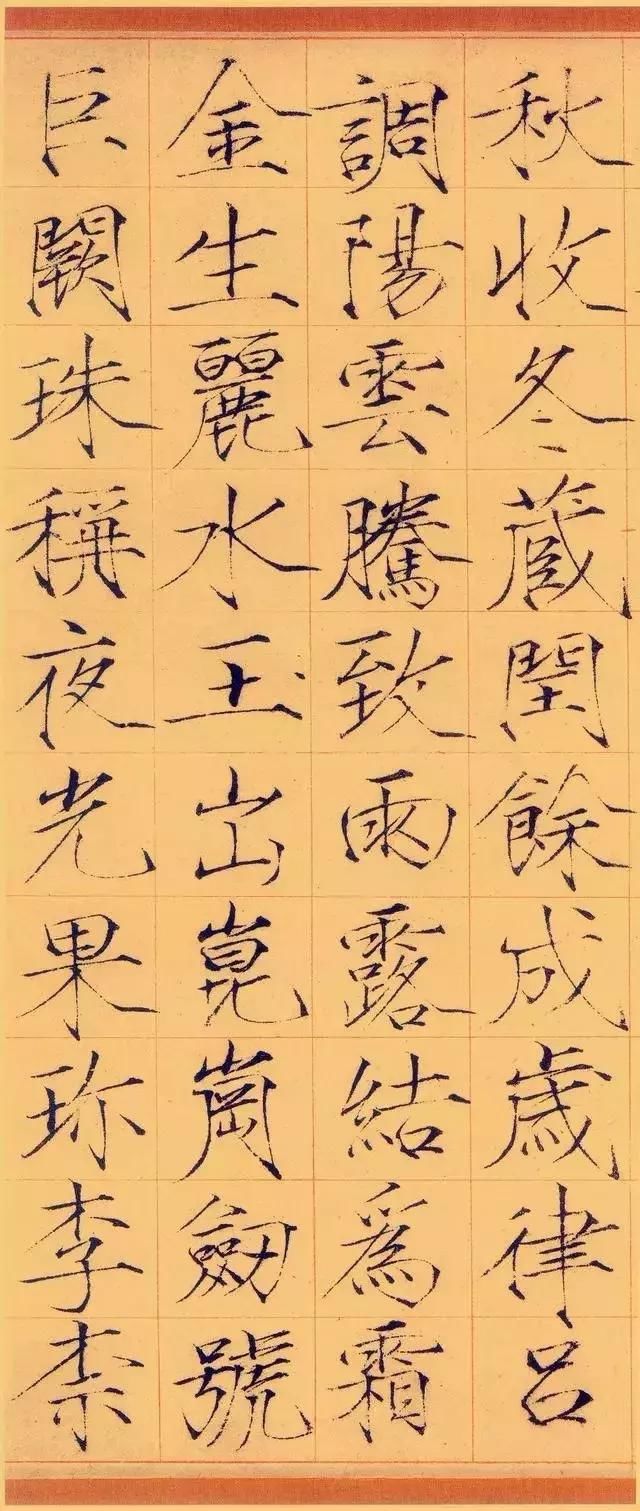 秋收冬蔵閏餘成歳律呂
調陽雲騰致雨露結為霜
金生麗水玉出崑崗劒號
巨闕珠稱夜光果珎李柰